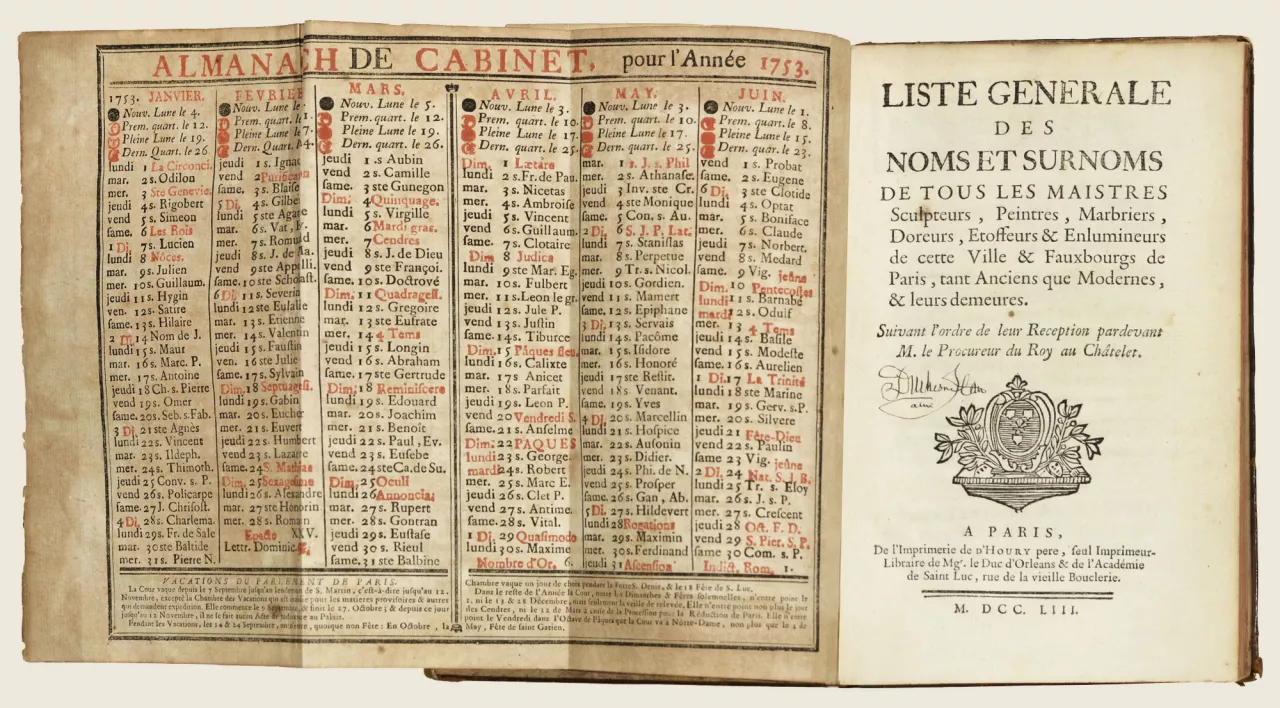 ALMANACH DE CABINET, pour l'Année 1753.
1753. JANVIER.
Nouv. Lune le 4.
Prem. quart. le 12.
Pleine Lune le 19.
Dern. Quart. le 26
lundi 1 La Circonci.
mar. 2 s. Odilon
mer. 3 Ste Genevie.
jeudi 4 s. Rigobert
vend 5 s. Simeon
same. 6 Les Rois
1 Di. 7 s. Lucien
lundi 8 Nôces.
mar. 9 s. Julien
mer. 10 s. Guillaum.
jeudi 11 s. Hygin
ven. 12 s. Satire
same. 13 s. Hilaire
2 Di. 14 Nom de J.
lundi 15 s. Maur
mar. 16 s. Marc. P.
mer. 17 s. Antoine
jeudi 18 Ch. s. Pierre
vend 19 s. Omer
same. 20 s. Seb. s. Fab.
3 Di. 21 ste Agnès
lundi 22 s. Vincent
mar. 23 s. Ildeph.
mer. 24 s. Thimoth.
jeudi 25 Conv. s. P.
vend 26 s. Policarpe
same. 27 J. Chrisost.
4 Di. 28 s. Charlema.
lundi 29 s. Fr. de Sale
mar. 30 ste Baltide
mer. 31 s. Pierre N.
FEVRIER
Nouv. Lune le
Prem. quart. le 1.
Pleine Lune le 17.
Dern. Quart. 24
jeudi 1 s. Ignac
vend 2 Purificati
same. 3 s. Blaise
5 Di. 4 s. Gilbe
lundi 5 ste Agate
mar. 6 s. Vat, E.
mer. 7 s. Romuald
jeudi 8 s. J. de Ma.
vend 9 ste Appolli.
same. 10 ste Scholast.
6 Di. 11 s. Severin
lundi 12 ste Eulalie
mar. 13 s. Etienne
mer. 14 s. Valentin
jeudi 15 s. Faustin
ven. 16 ste Julie
same. 17 s. Sylvain
Dim. 18 Septuages.
lundi 19 s. Gabin
mar. 20 s. Eucher
mer. 21 s. Euvert
jeudi 22 s. Humbert
vend 23 s. Lazare
same. 24 S. Mathias
Dim. 25 Sexagesime
lundi 26 s. Alexandre
mar. 27 ste Honorin
mer. 28 s. Romain
Epacte XXV.
Lettr. Dominic. G.
MARS.
Nouv. Lune le 5.
Prem. quart. le 12.
Pleine Lune le 19.
Dern. quart. le 26.
jeudi 1 s. Aubin
vend 2 s. Camille
same. 3 ste Gunegon
Dim. 4 Quinquage.
lundi 5 s. Virgille
mar. 6 Mardi gras.
mer. 7 Cendres
jeudi 8 s. J. de Dieu
vend 9 ste Françoi.
same. 10 s. Doctrové
Dim. 11 Quadragess.
lundi 12 s. Gregoire
mar. 13 ste Eufrate
mer. 14 4 Tems
jeudi 15 s. Longin
vend 16 s. Abraham
same. 17 ste Gertrude
Dim. 18 Reminiscere
lundi 19 s. Edouard
mar. 20 s. Joachim
mer. 21 s. Benoît
jeudi 22 s. Paul, Ev.
vend 23 s. Eusebe
same. 24 ste Ca. de Su.
Dim. 25 Oculi
lundi 26 Annoncia.
mar. 27 s. Rupert
mer. 28 s. Gontran
jeudi 29 s. Eustase
vend 30 s. Rieul
same. 31 ste Balbine
AVRIL.
Nouv. Lune le 3.
Prem. quart. le 10.
Pleine Lune le 17.
Dern. quart. le 25.
Dim. 1 Lætare
lundi 2 s. Fr. de Pau.
mar. 3 s. Nicetas
mer. 4 s. Ambroise
jeudi 5 s. Vincent
vend 6 s. Guillaum.
same. 7 s. Clotaire
Dim 8 Judica
lundi 9 ste Mar. Eg.
mar. 10 s. Fulbert
mer. 11 s. Leon le gr.
jeudi 12 s. Jule P.
vend 13 s. Justin
same. 14 s. Tiburce
Dim. 15 Pâques fleu.
lundi 16 s. Calixte
mar. 17 s. Anicet
mer. 18 s. Parfait
jeudi 19 s. Leon P.
vend 20 Vendredi S.
same. 21 s. Anselme
Dim. 22 PAQUES
lundi 23 s. George.
mardi 24 s. Robert
mer. 25 s. Marc E.
jeudi 26 s. Clet P.
vend 27 s. Antime.
same. 28 s. Vital.
1 Di. 29 Quasimodo
lundi 30 s. Maxime
Nombre d'Or, 6.
MAY.
Nouv. Lune le 3.
Prem. quart. le 10.
Pleine Lune le 17.
Dern. quart. le 25.
mar. 1 s. J. s. Phil
mer. 2 s. Athanase.
jeudi 3 Inv. ste Cr.
vend 4 ste Monique
same. 5 Con. s. Au.
2 Di. 6 S. J. P. Lat.
lundi 7 s. Stanislas
mar. 8 s. Perpetue
mer. 9 Tr. s. Nicol.
jeudi 10 s. Gordien.
vend 11 s. Mamert
same. 12 s. Epiphane
3 Di. 13 s. Servais
lundi 14 s. Pacôme
mar. 15 s. Isidore
mer. 16 s. Honoré
jeudi 17 ste Restit.
vend 18 s. Venant.
same. 19 s. Yves
4 Di. 20 s. Marcellin
lundi 21 s. Hospice
mar. 22 s. Ausonin
mer. 23 s. Didier.
jeudi 24 s. Phi. de N.
vend 25 s. Prosper
same. 26 s. Gan, Ab.
5 Di. 27 s. Hildevert
lundi 28 Rogations
mar. 29 s. Maximin
mer. 30 s. Ferdinand
jeudi 31 Ascension
JUIN.
Nouv. Lune le 1.
Prem. quart. le 8.
Pleine Lune le 15.
Dern. quart. le 23.
vend 1 s. Probat
same. 2 s. Eugene
6 Di. 3 ste Clotide
lundi 4 s. Optat
mar. 5 s. Boniface
mer. 6 s. Claude
jeudi 7 s. Norbert.
vend 8 s. Medard
same. 9 Vig. jeûne
Dim. 10 Pentecostes
lundi 11 s. Barnabé
mardi 12 s. Odulf
mer. 13 4 Tems
jeudi 14 s. Basile
vend 15 s. Modeste
same. 16 s. Aurelien
1 Di. 17 La Trinité
lundi 18 ste Marine
mar. 19 s. Gerv. s. P.
mer. 20 s. Silvere
jeudi 21 Fête-Dieu
vend 22 s. Paulin
same 23 Vig. jeûne
2 Di. 24 Nat. S. J. B.
lundi 25 Tr. s. Eloy
mar. 26 s. J. s. P.
mer. 27 s. Crescent
jeudi 28 Oct. F. D.
vend 29 S. Pier. S. P.
same 30 Com. s. P.
Indict. Rom. 1.
VACATIONS DU PARLEMENT DE PARIS.
La Cour vaque depuis le 7 Septembre jusqu'au lendemain de S. Martin, c'est-à-dire jusqu'au 12.
Novembre, excepté la Chambre des Vacations qui est établie pour les matieres provisoires & autres
qui demandent expedition. Elle commence le 9 Septembre, & finit le 27. Octobre; & depuis ce jour
jusqu'au 12 Novembre, il ne se fait aucun Acte de Justice au Palais.
Pendant les Vacations, les 14 & 24 Septembre, même, quoique non Fête: En Octobre, la
Chambre vaque un jour de choix pendant la Foire S. Denis, & le 18 Fête de S. Luc.
Dans le reste de l'Année la Cour, outre les Dimanches & Fêtes solemnelles, n'entre point le
1, ni le 13 & 28 Décembre, mais seulement la veille de relevée. Elle n'entre point non plus le jour
des Cendres, ni le 12 de Mars à cause de la Procession pour la Réduction de Paris. Elle n'entre
point le Vendredi dans l'Octave de Pâques que la Cour va à Nôtre-Dame, non plus que le 2 de
May, Fête de saint Gatien.
LISTE GENERALE
DES
NOMS ET SURNOMS
DE TOUS LES MAISTRES
Sculpteurs, Peintres, Marbriers,
Doreurs, Etoffeurs & Enlumineurs
de cette Ville & Fauxbourgs de
Paris, tant Anciens que Modernes,
& leurs demeures.
Suivant l'ordre de leur Reception pardevant
M. le Procureur du Roy au Châtelet.
A PARIS,
De l'Imprimerie de D'HOURY pere, seul Imprimeur-
Libraire de Mgr. le Duc d'Orleans & de l'Académie
de Saint Luc, rue de la vieille Bouclerie.
M. DCC. LIII.